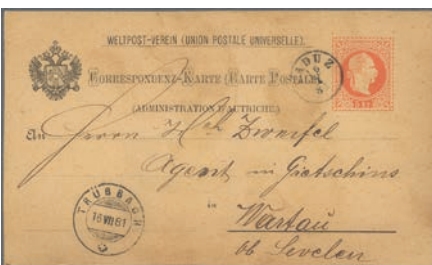 WELTPOST-VEREIN (UNION POSTALE UNIVERSELLE).
CORRESPONDENZ-KARTE (CARTE POSTALE)
(ADMINISTRATION D'AUTRICHE)
ADUZ
An Herrn Zweifel
Agent in Gretschins
in Wartau
ob Sevelen
TRÜBBACH
16 VII 81